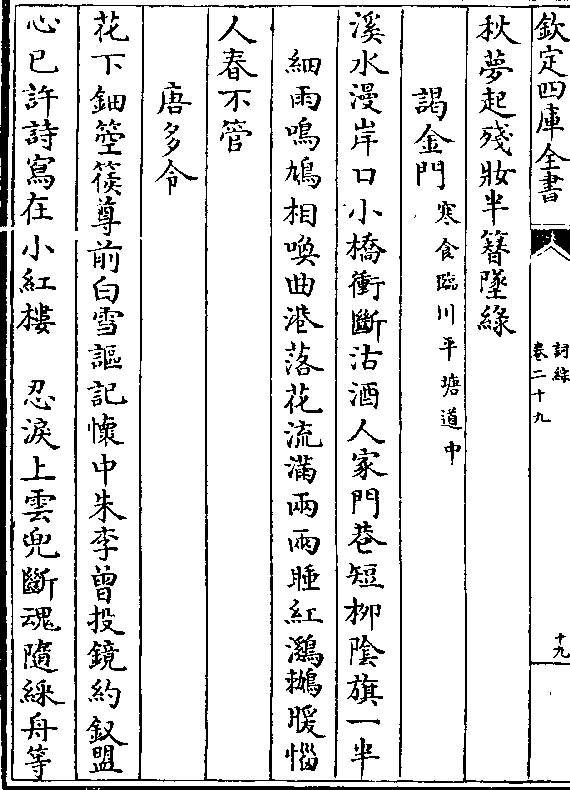 欽定四庫全書
詞綜
卷二十九
十九
秋夢起殘妝半簪墜綠
謁金門寒食臨川平塘道中
溪水漫岸口小橋衝斷沽酒人家門巷短柳陰旗一半
細雨鳴鳩相喚曲港落花流滿兩兩睡紅鸂鶒暖惱
人春不管
唐多令
花下鈿箜篌尊前白雪謳記懷中朱李曾投鏡約釵盟
心已許詩寫在小紅樓　忍淚上雲兜斷魂隨綵舟等